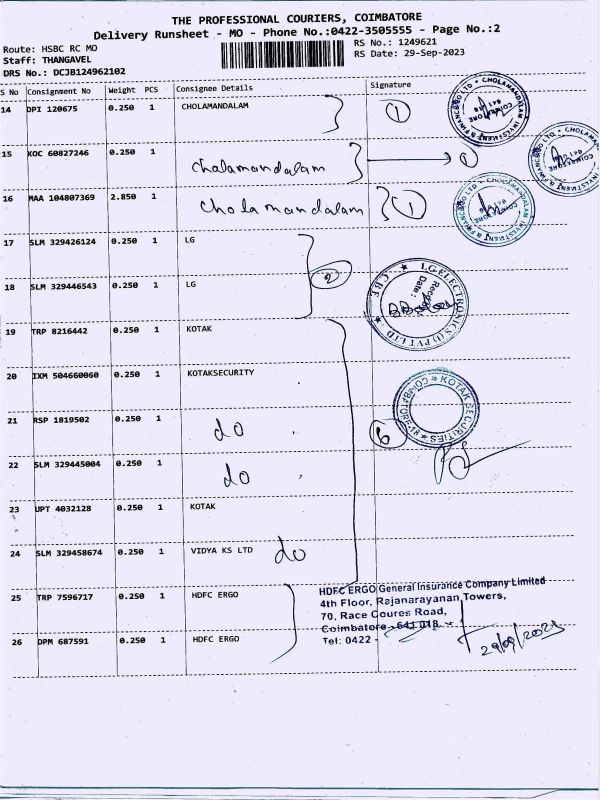 THE PROFESSIONAL COURIERS, COIMBATORE
Delivery Runsheet - MO - Phone No.:0422-3505555 - Page No.:2
Route: HSBC RC MO
RS No.: 1249621
Staff: THANGAVEL
RS Date: 29-Sep-2023
DRS No.: DCJB124962102
S No Consignment No Weight PCS Consignee Details Signature
14 DPI 120675 0.250 1 CHOLAMANDALAM 1
15 KOC 60827246 0.250 1 Cholamandalam 1
16 MAA 104807369 2.850 1 Cholamandalam 1
17 SLM 329426124 0.250 1 LG
2
18 SLM 329446543 0.250 1 LG
19 TRP 8216442 0.250 1 KOTAK
20 IXM 504660060 0.250 1 KOTAKSECURITY
21 RSP 1819502 0.250 1 do 6
22 SLM 329445004 0.250 1 do
23 UPT 4032128 0.250 1 KOTAK
24 SLM 329458674 0.250 1 VIDYA KS LTD do
25 TRP 7596717 0.250 1 HDFC ERGO
26 DPM 687591 0.250 1 HDFC ERGO
CHOLAMANDALAM INVESTMENT & FINANCE CO LTD
COIMBATORE
CHOLAMANDALAM INVESTMENT & FINANCE CO LTD
COIMBATORE
CHOLAMANDALAM INVESTMENT & FINANCE CO LTD
COIMBATORE
LG ELECTRONICS (I) PVT LTD
CBE
Date:
KOTAK SECURITIES
COIMBATORE-18
HDFC ERGO General Insurance Company Limited
4th Floor, Rajanarayanan Towers,
70, Race Coures Road,
Coimbatore - 641 018.
Tel: 0422 -